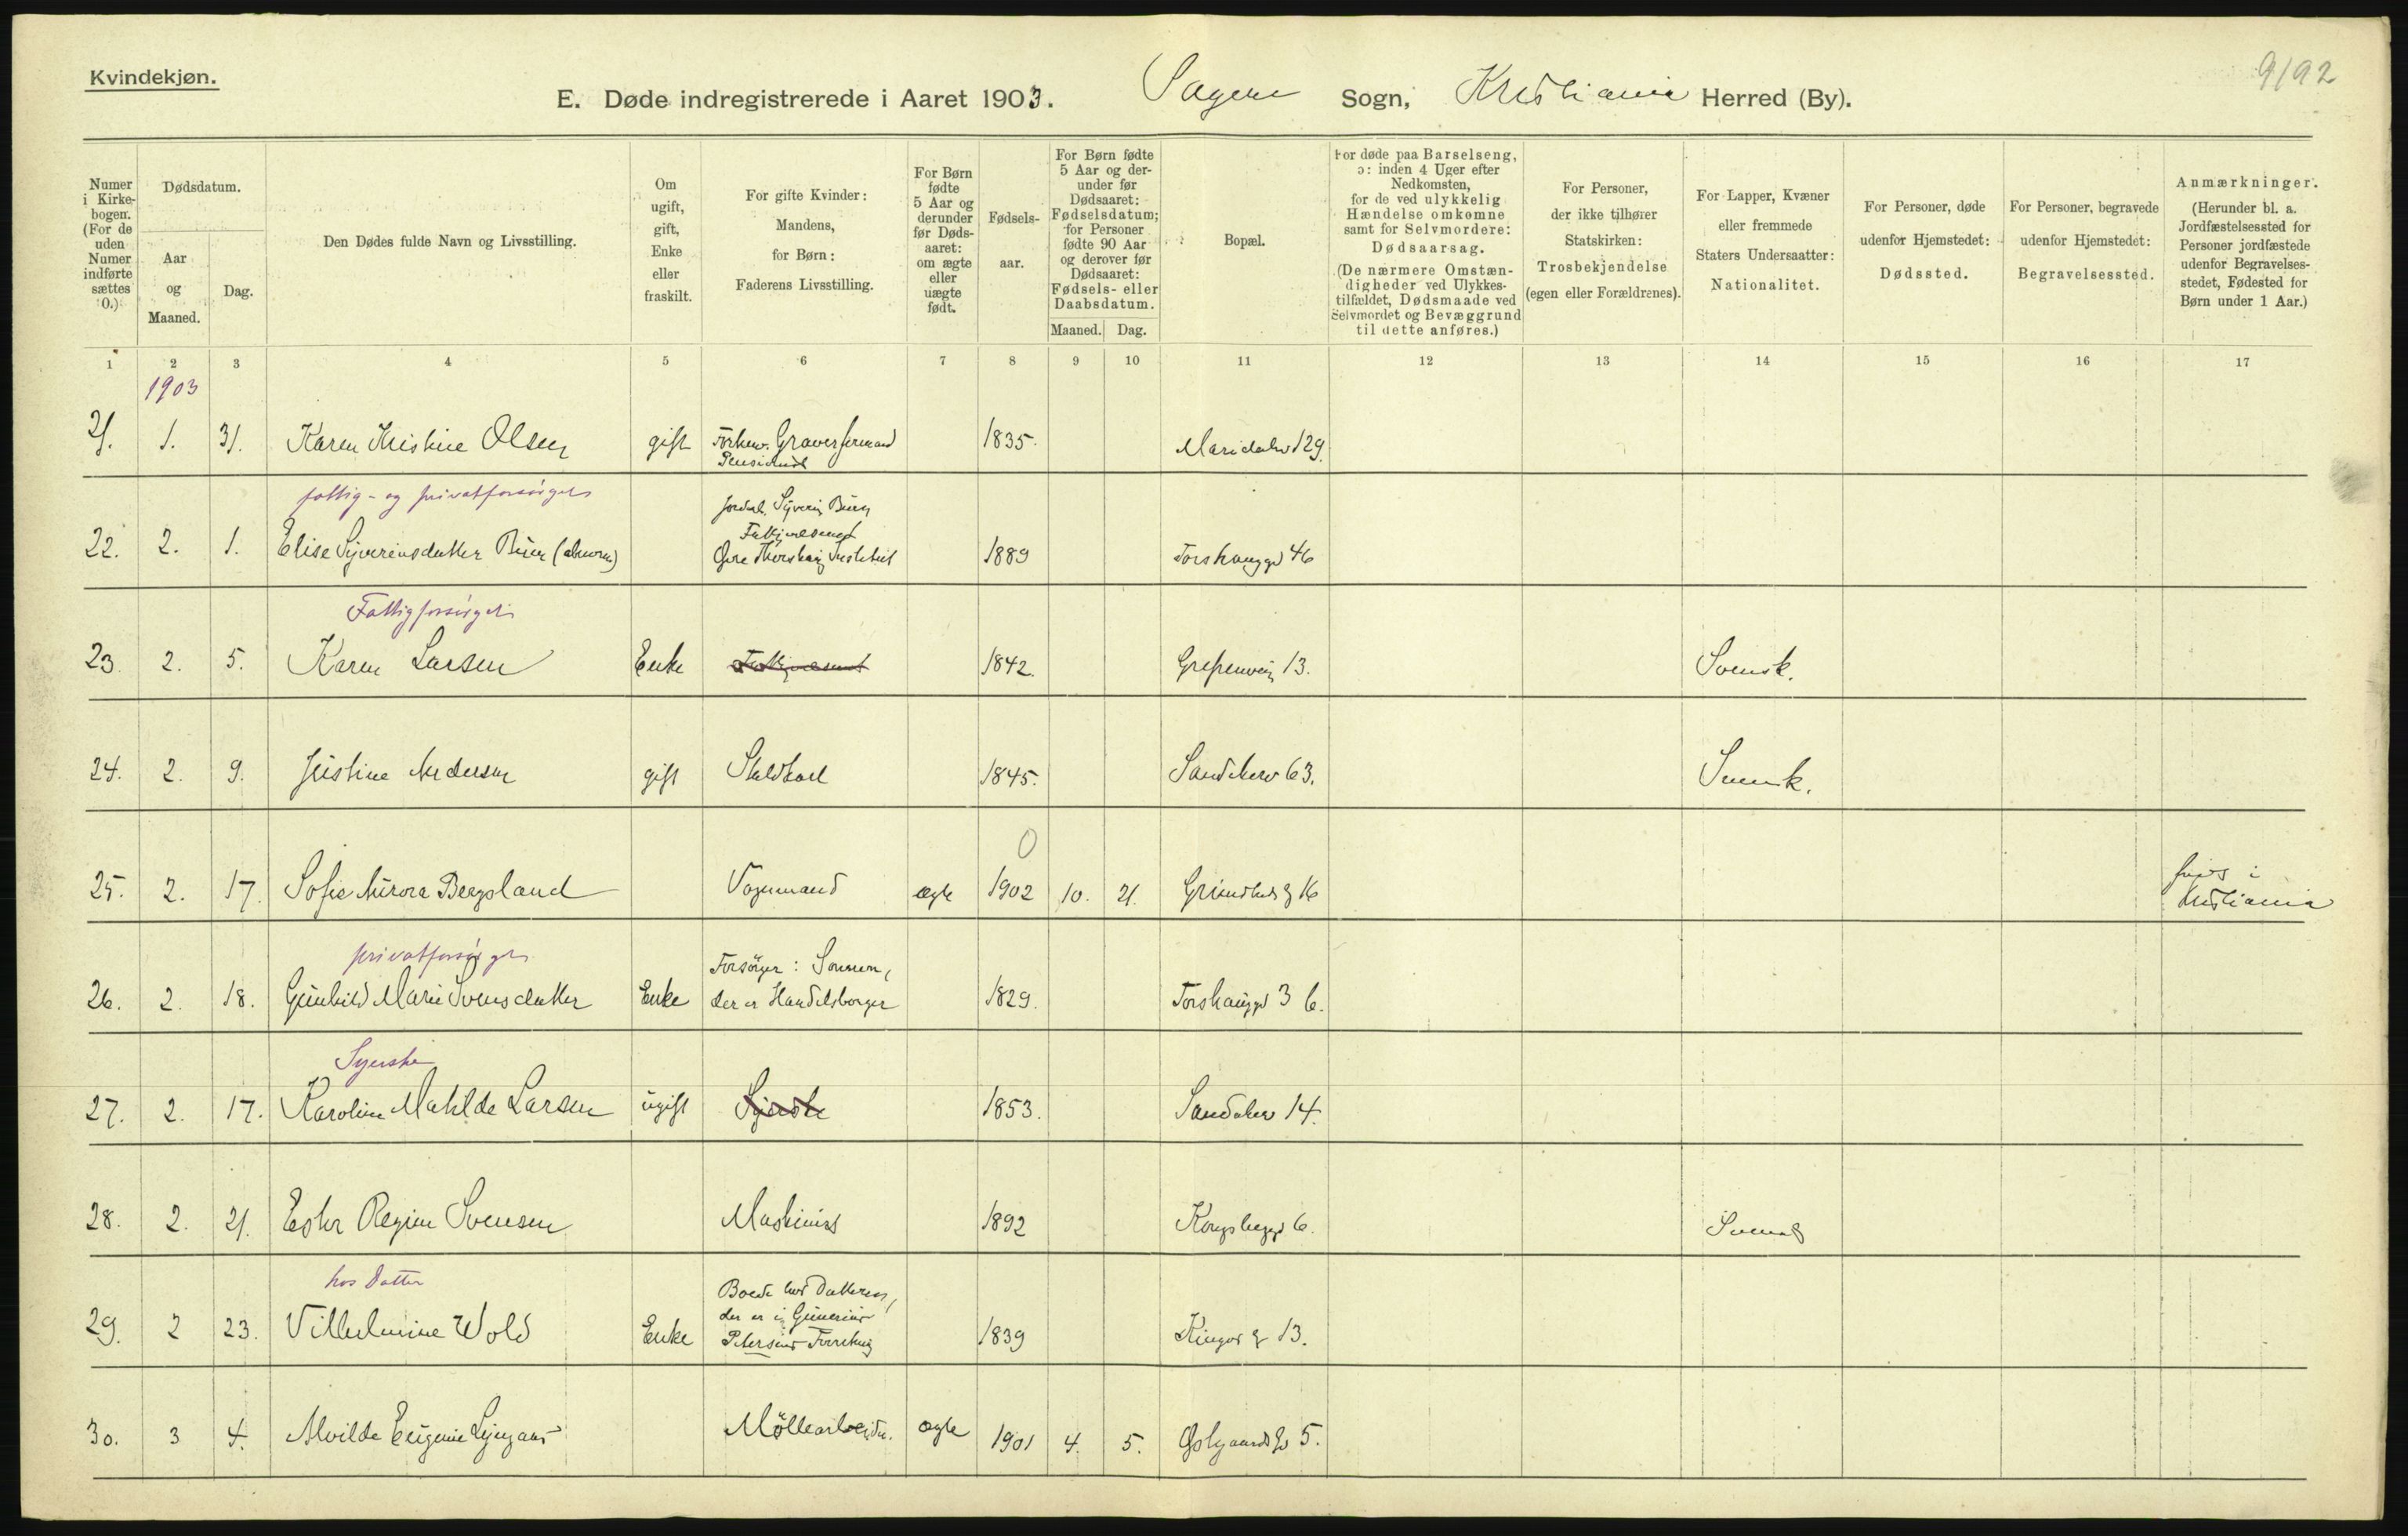 Kvindekjøn.
9/92
E. Døde indregistrerede i Aaret 1903. Sagene Sogn, Kristiania Herred (By).
Numer i Kirkebogen. (For de uden Numer indførte sættes 0.)
Dødsdatum.
Aar og Maaned.
Dag.
Den Dødes fulde Navn og Livsstilling.
Om ugift, gift, Enke eller fraskilt.
For gifte Kvinder: Mandens, for Børn: Faderens Livsstilling.
For Børn fødte 5 Aar og derunder før Dødsaaret: om ægte eller uægte født.
Fødselsaar.
For Børn fødte 5 Aar og derunder før Dødsaaret: Fødselsdatum; for Personer fødte 90 Aar og derover før Dødsaaret: Fødsels- eller Daabsdatum.
Maaned. Dag.
Bopæl.
For døde paa Barselseng, ɔ: inden 4 Uger efter Nedkomsten, for de ved ulykkelig Hændelse omkomne samt for Selvmordere: Dødsaarsag. (De nærmere Omstændigheder ved Ulykkestilfældet, Dødsmaade ved Selvmordet og Bevæggrund til dette anføres.)
For Personer, der ikke tilhører Statskirken: Trosbekjendelse (egen eller Forældrenes).
For Lapper, Kvæner eller fremmede Staters Undersaatter: Nationalitet.
For Personer, døde udenfor Hjemstedet: Dødssted.
For Personer, begravede udenfor Hjemstedet: Begravelsessted.
Anmærkninger. (Herunder bl. a. Jordfæstelsessted for Personer jordfæstede udenfor Begravelsesstedet, Fødested for Børn under 1 Aar.)
1 2 3 4 5 6 7 8 9 10 11 12 13 14 15 16 17
1903
21. 1. 31. Karen Kristine Olsen gift Forhenv. Graverformand 1835. Maridalsv 129.
Pensionist
fattig- og privatforsørget
22. 2. 1. Elise Syverinsdatter Buer 1889 Torshauggd 46
Fattigforsørget
23. 2. 5. Karen Larsen Enke 1842. Grefsenvein 13. Svensk.
24. 2. 9. Justine Andersen gift Staldkarl 1845. Sandakerv 63. Svensk.
0
25. 2. 17. Sofie Aurora Bergsland Vognmand ægte 1902 10. 21. 16 født i
Kristiania
privatforsørget
26. 2. 18. Gunhild Marie Svensdatter Enke Forsørger: Sønnen, der er Handelsborger 1829. Torshauggd 3 b.
Syerske
27. 2. 17. Karoline Mathilde Larsen ugift Syerske 1853. Sandakerv 14.
28. 2. 21. Ester Regine Svensen Maskinist 1892 6. Svensk
hos Datter
29. 2 23. Vilhelmine Wold Enke Boede hos Datteren, der er i Gunerius Petersens Forretning 1839 Kingosg 13.
30. 3 4. Alvilde Eugenie Møllearbeider. ægte 1901 4. 5. 5.